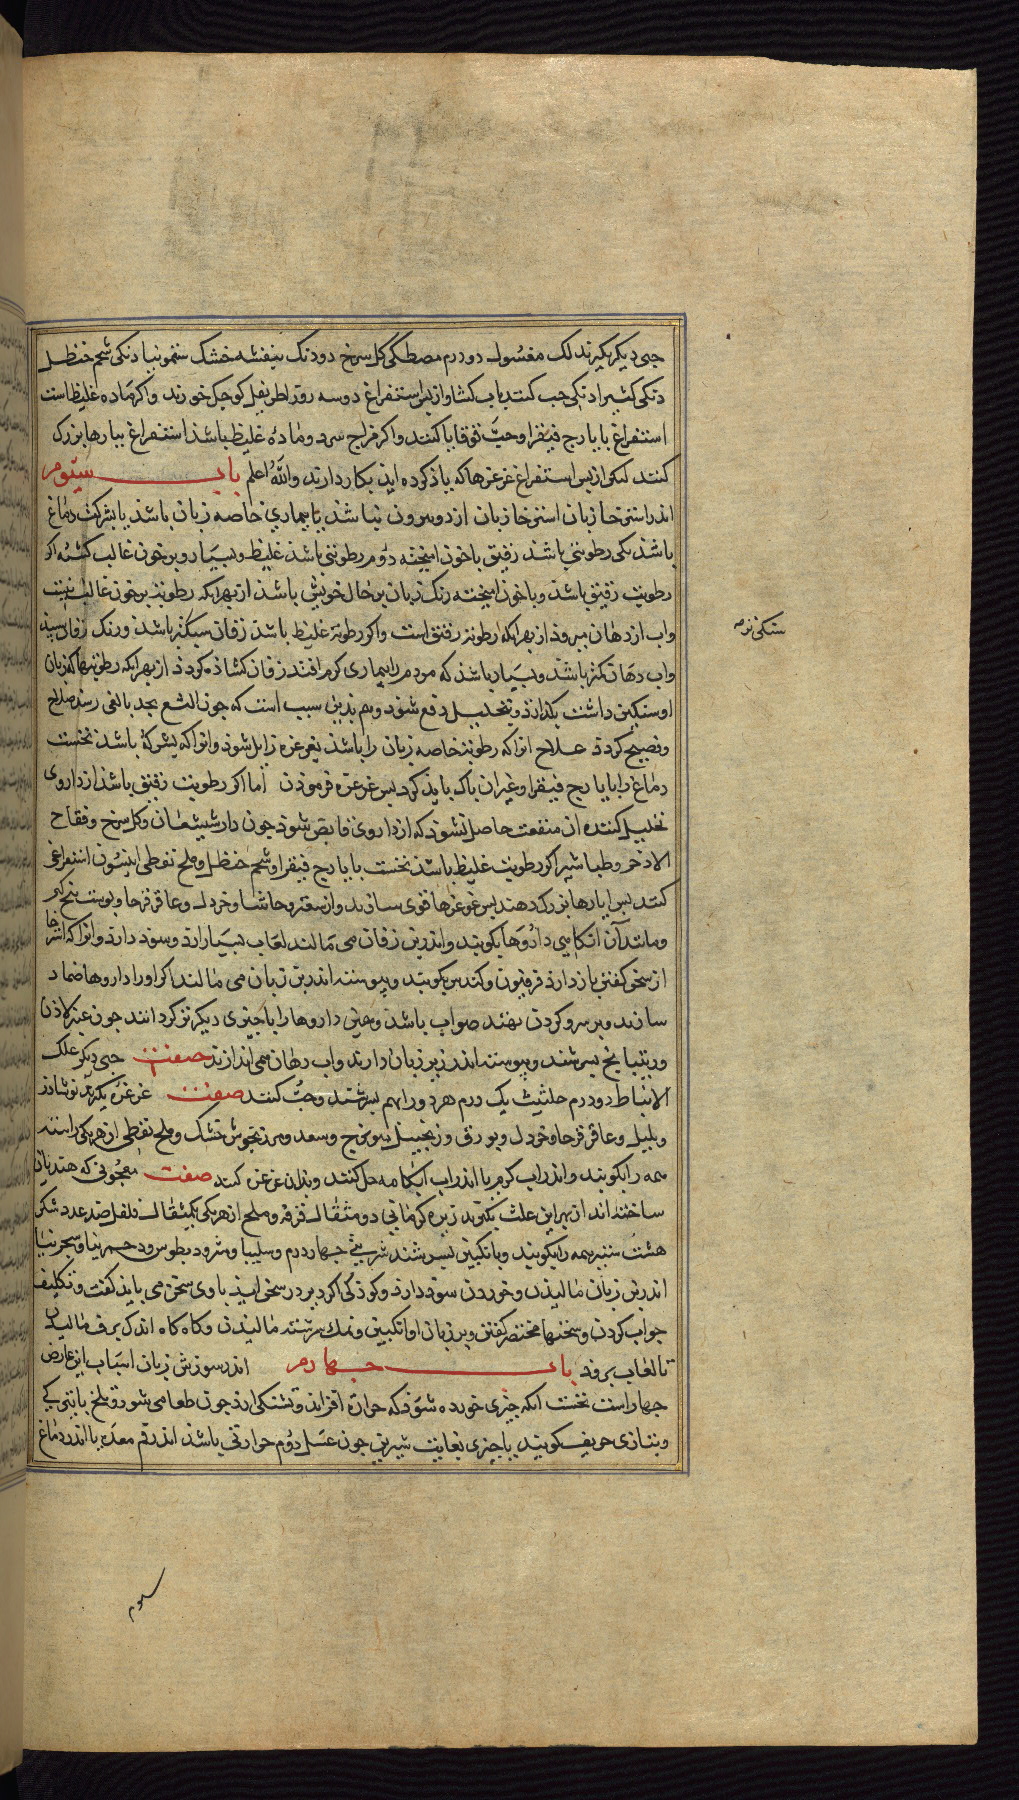 حبی دیکر بکیرند لک مغسول دو درم مصطکی کل سرخ دو دنک بنفشه خشک سقمونیا دنکی شحم حنظل
دنکی کثیرا دنکی حب کنند باب کشنا و از بس استفراغ دو سه روز اطریفل کوجک خورند و اکر ماده غلیظ است
استفراغ بایارج فیقرا و حب قوقایا کنند و اکر مزاج سرد و ماده غلیظ باشد استفراغ بیارها بزرک
کنند لیکن از بس استفراغ غرغرها که یاذ کرده اید بکار دارند والله اعلم باب سیوم
اندر استرخا زبان استرخا زبان از دو بیرون نباشد یا بیماری خاصه زبان باشد یا بشرکت دماغ
باشد یکی رطوبتی باشد رقیق با خون امیخته دوم رطوبتی باشد غلیظ و بسیار و بر خون غالب کشته اکر
رطوبت رقیق باشد و با خون امیخته رنک زبان بر حال خویش باشد از بهر انکه رطوبت بر خون غالب نیست
واب از دهان میرود از بهر انکه رطوبة رقیق است و اکر رطوبة غلیظ باشد زفان سبکتر باشد و رنک زفان سپید
واب دهان کمتر باشد و بسیار باشد که مردم را بیماری کرم افتد زفان کشاده کردد از بهر انکه رطوبتها که زبان
او سنکین داشت بکدازد و تحلیل دفع شود و هم بدین سبب است که جون الثغ بحد بالغی رسد صلاح
و فصیح کردد علاج انرا که رطوبت خاصه زبان را باشد بغرغره زایل شود و انرا که بشرکة باشد نخست
دماغ را بایارج فیقرا و غیر ان باک باید کرد بس غرغره فرمودن اما اکر رطوبت رقیق باشد از داروی
تحلیل کننده ان منفعت حاصل نشود که از داروی قابض شود جون دارشیشعان و کل سرخ و فقاح
الاذخر و طباشیر اکر رطوبت غلیظ باشد نخست بایارج فیقرا و شحم حنظل و ملح نفطی انیسون استفراغ
کنند بس ایارها بزرک دهند بس غرغرها قوی سازند و از سعتر و حاشا و خردل و عاقرقرحا و بوست بیخ کبر
و مانند آن انکامی داروها بکوبند و اندر بن زفان می مالند لعاب بسیار ارد و سود دارد و انرا که استرخا
از سخن کفتن باز دارد فرفیون و کندس بکوبند و بیوسته اندر بن زبان می مالند اکر او را داروها ضماد
سازند و بر سر و کردن نهند صواب باشد و همین داروها را با جیزی دیکر نرکردانند جون عنبر لاذن
و ریتیانج بسرشند و بیوسته اندر زیر زبان دارند واب دهان می اندازند صفت حبی دیکر علک
الانباط دو درم حلتیث یک درم هر دو را بهم بسرشند و حب کنند صفت غرغره بکیرند نوشادر
و بلبل و عاقرقرحا و خردل و بورق و زنجبیل مویزج و سعد و مرزنجوش خشک و ملح نفطی از هر یکی راسته
همه را بکوبند و اندر اب کرم یا اندر اب ابکامه حل کنند و بدان غرغره کنند صفت معجونی که هندیان
ساخته اند از بهر این علت بکیرند زیره کرمانی دو مثقال قرفه و ملح از هر یکی یکمثقال فلفل صد عدد شکر
هشت ستیر همه را بکوبند و با نکبین بسرشند شربتی جهار درم و سلیبا و مثرودیطوس و دحمرثا و سجزنیا
اندر بن زبان مالیدن و خوردن سود دارد و کودکی اکر دیر در سخن اید با وی سخن می باید کفت و تکلیف
جواب کردن و سخنها مختصر کفتن و بر زبان او انکبین و نمک سرشته مالیدن و کاه کاه اندک برف مالیدن
تا لعاب برود باب جهارم اندر سوزش زبان اسباب این عارض
جهار است نخست انکه جیزی خورده شود که حرارة افزاید و تشنکی ارد جون طعامی شور و تلخ یا تیزی کی
و بتازی حریف کویند یا جیزی بغایت شیرین جون عسل دوم حرارتی باشد اندر فم معده یا اندر دماغ
سنکی نرمه
سوم